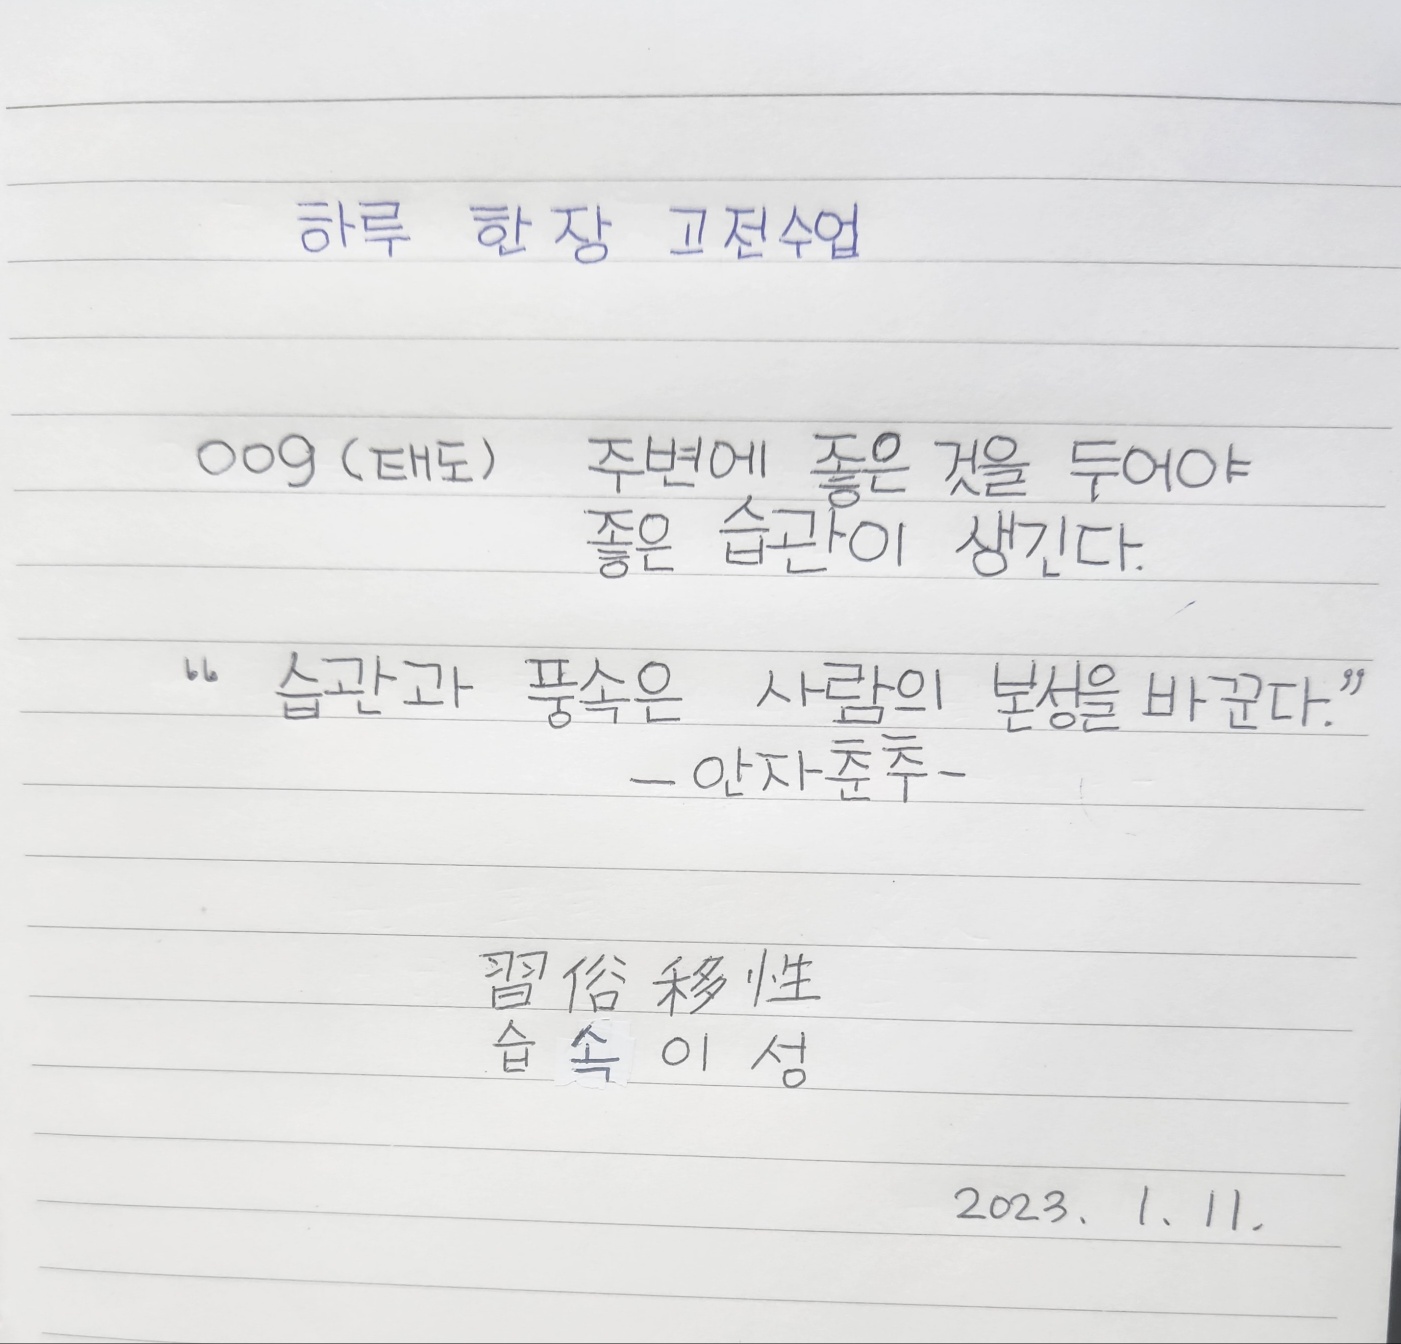 하루 한 장 고전수업
009 (태도) 주변에 좋은 것을 두어야
좋은 습관이 생긴다.
“ 습관과 풍속은 사람의 본성을 바꾼다.”
- 안자춘추 -
習俗移性
습속이성
2023. 1. 11.